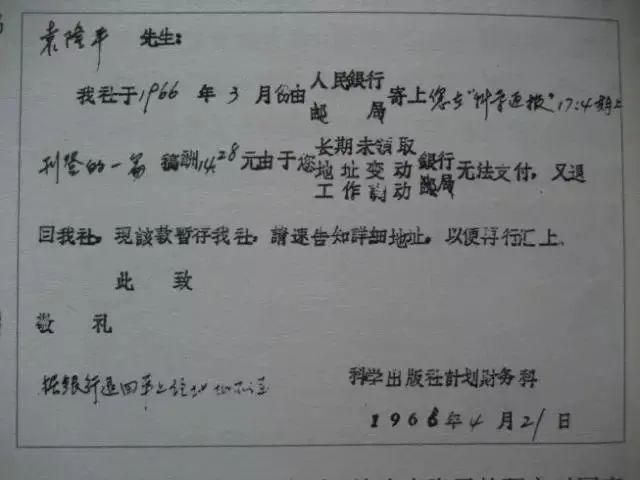 袁隆平 先生:
我社于1966 年 3 月份由 人民銀行 邮局 寄上您在"科学通报"17:4期上
刊登的一篇 稿酬14.28元由于您 长期未領取 地址变动 工作調动 銀行 邮局 无法支付,又退
回我社。現該款暂存我社,請速告知詳細地址,以便再行汇上。
此 致
敬 礼
科学出版社計划財务科
1966年4月21日